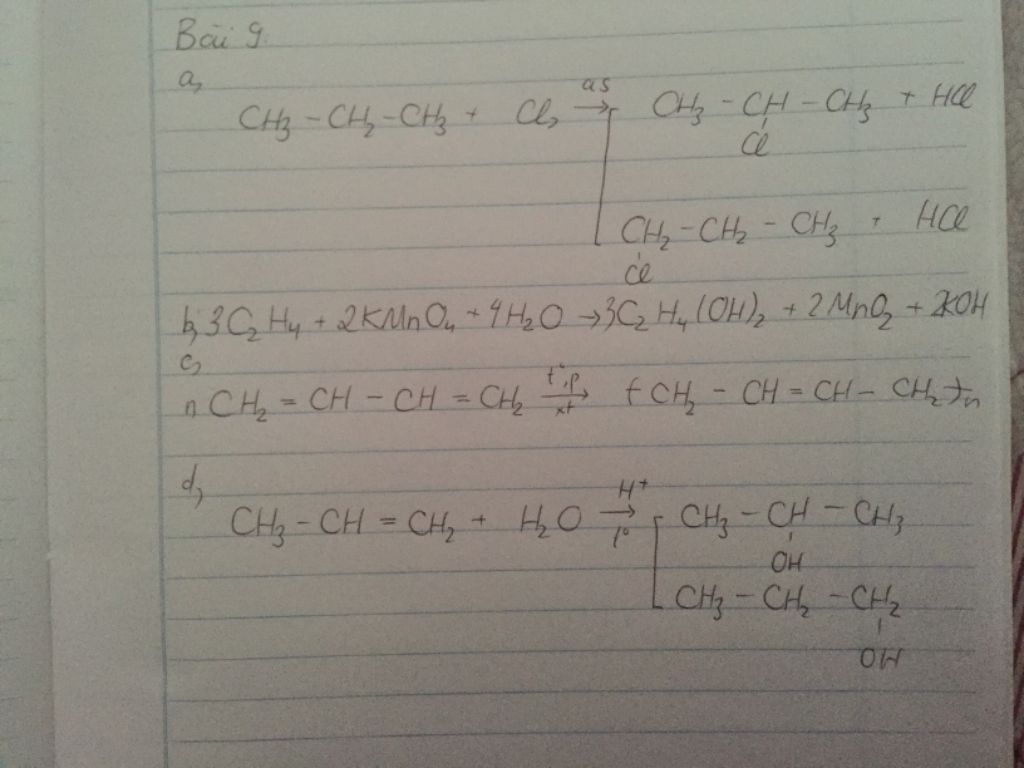 Bài 9.
a,
as
CH3 – CH2 – CH3 + Cl2 → CH3 – CH – CH3 + HCl
Cl
CH2 – CH2 – CH3 + HCl
Cl
b, 3C2H4 + 2KMnO4 + 4H2O → 3C2H4(OH)2 + 2MnO2 + 2KOH
c,
t°, p
n CH2 = CH – CH = CH2 → (CH2 – CH = CH – CH2)n
xt
d,
H+
CH3 – CH = CH2 + H2O → CH3 – CH – CH3
t°
OH
CH3 – CH2 – CH2
OH